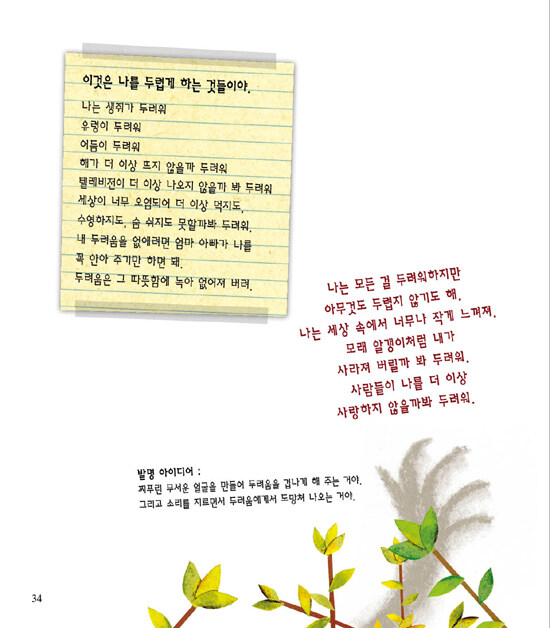 이것은 나를 두렵게 하는 것들이야.
나는 생쥐가 두려워
유령이 두려워
어둠이 두려워
해가 더 이상 뜨지 않을까 두려워
텔레비전이 더 이상 나오지 않을까 봐 두려워
세상이 너무 오염되어 더 이상 먹지도,
수영하지도, 숨 쉬지도 못할까봐 두려워.
내 두려움을 없애려면 엄마 아빠가 나를
꼭 안아 주기만 하면 돼.
두려움은 그 따뜻함에 녹아 없어져 버려.
나는 모든 걸 두려워하지만
아무것도 두렵지 않기도 해.
나는 세상 속에서 너무나 작게 느껴져.
모래 알갱이처럼 내가
사라져 버릴까 봐 두려워.
사람들이 나를 더 이상
사랑하지 않을까봐 두려워.
발명 아이디어 :
찌푸린 무서운 얼굴을 만들어 두려움을 겁나게 해 주는 거야.
그리고 소리를 지르면서 두려움에게서 도망쳐 나오는 거야.
34